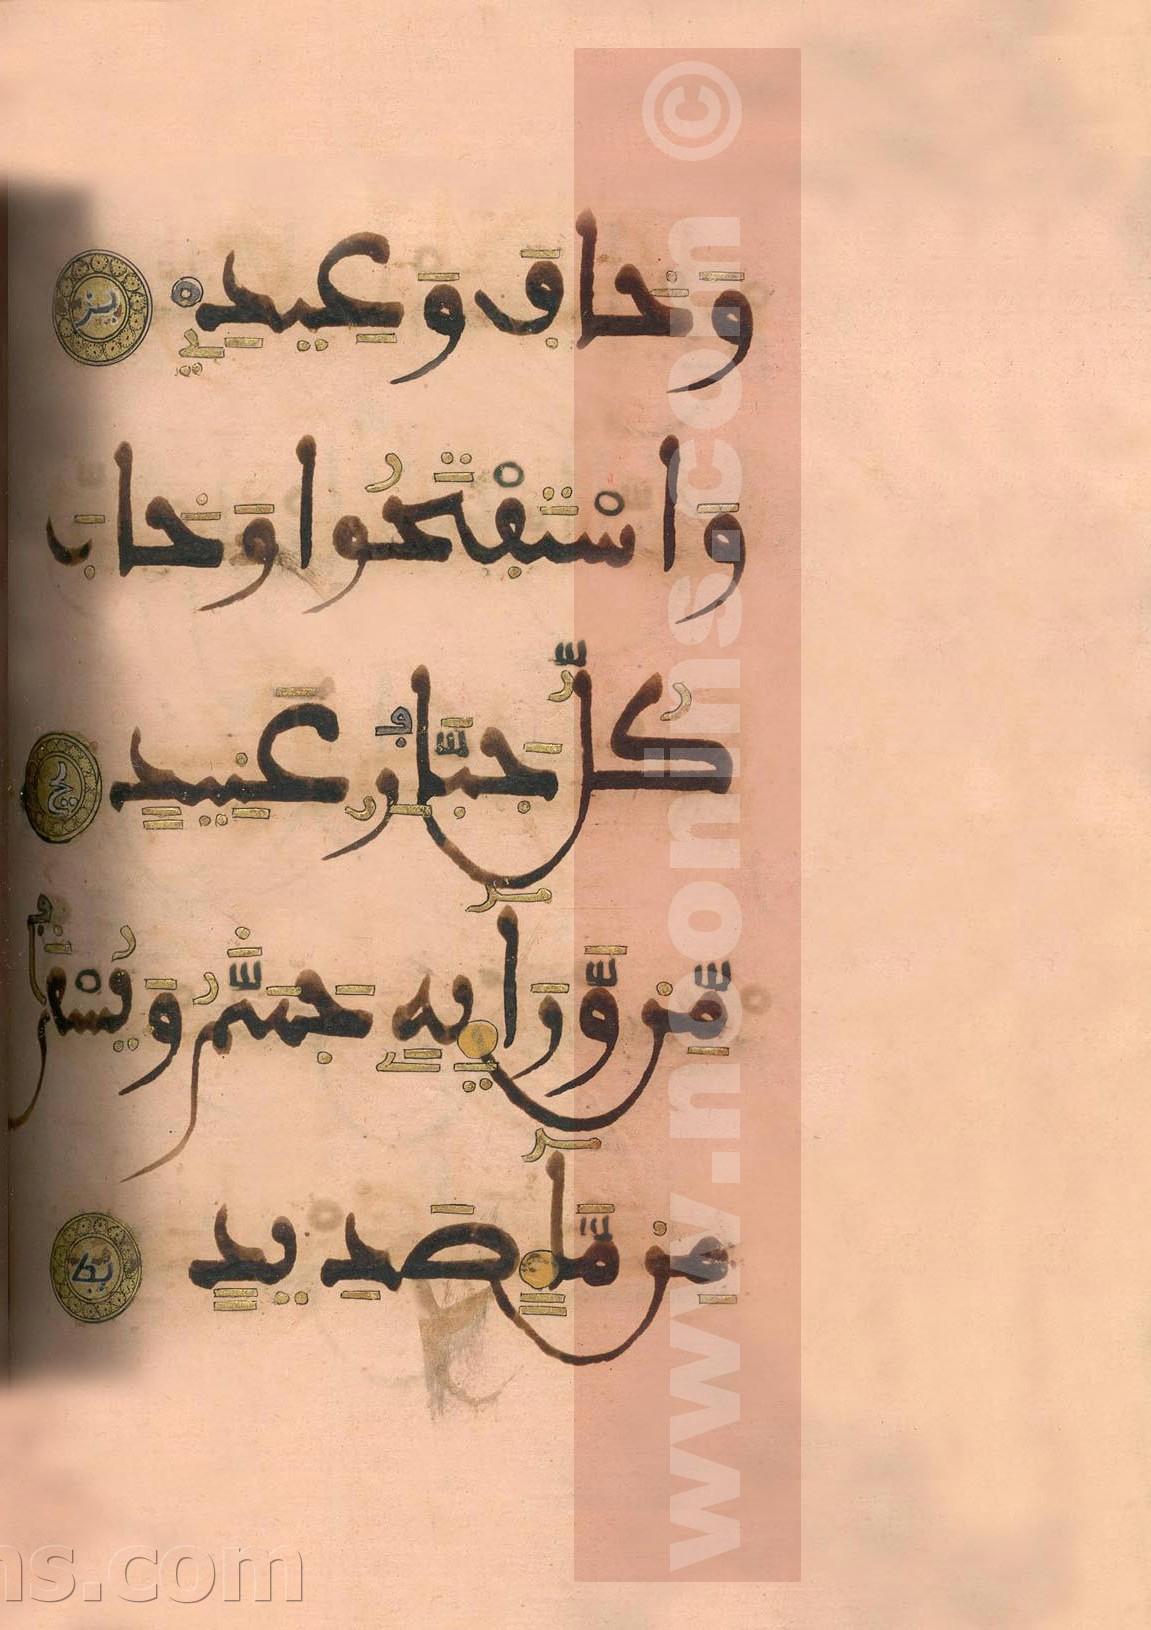 وَخَافَ وَعِيدِۦ
يز
وَاسْتَفْتَحُوا وَخَابَ
كُلُّ جَبَّارٍ عَنِيدٍ
يح
مِّن وَّرَآئِهِۦ جَهَنَّمُ وَيُسْقَىٰ
مِن مَّآءٍ صَدِيدٍ
يط
www.nbonims.com ©
ns.com